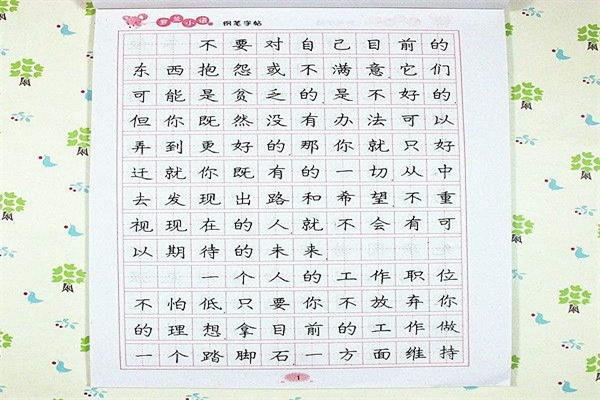 罗兰小语 钢笔字帖
不要对自己目前的
东西抱怨或不满意它们
可能是贫乏的是不好的
但你既然没有办法可以
弄到更好的那你就只好
迁就你既有的一切从中
去发现出路和希望不重
视现在的人就不会有可
以期待的未来
一个人的工作职位
不怕低只要你不放弃你
的理想拿目前的工作做
一个踏脚石一方面维持
1